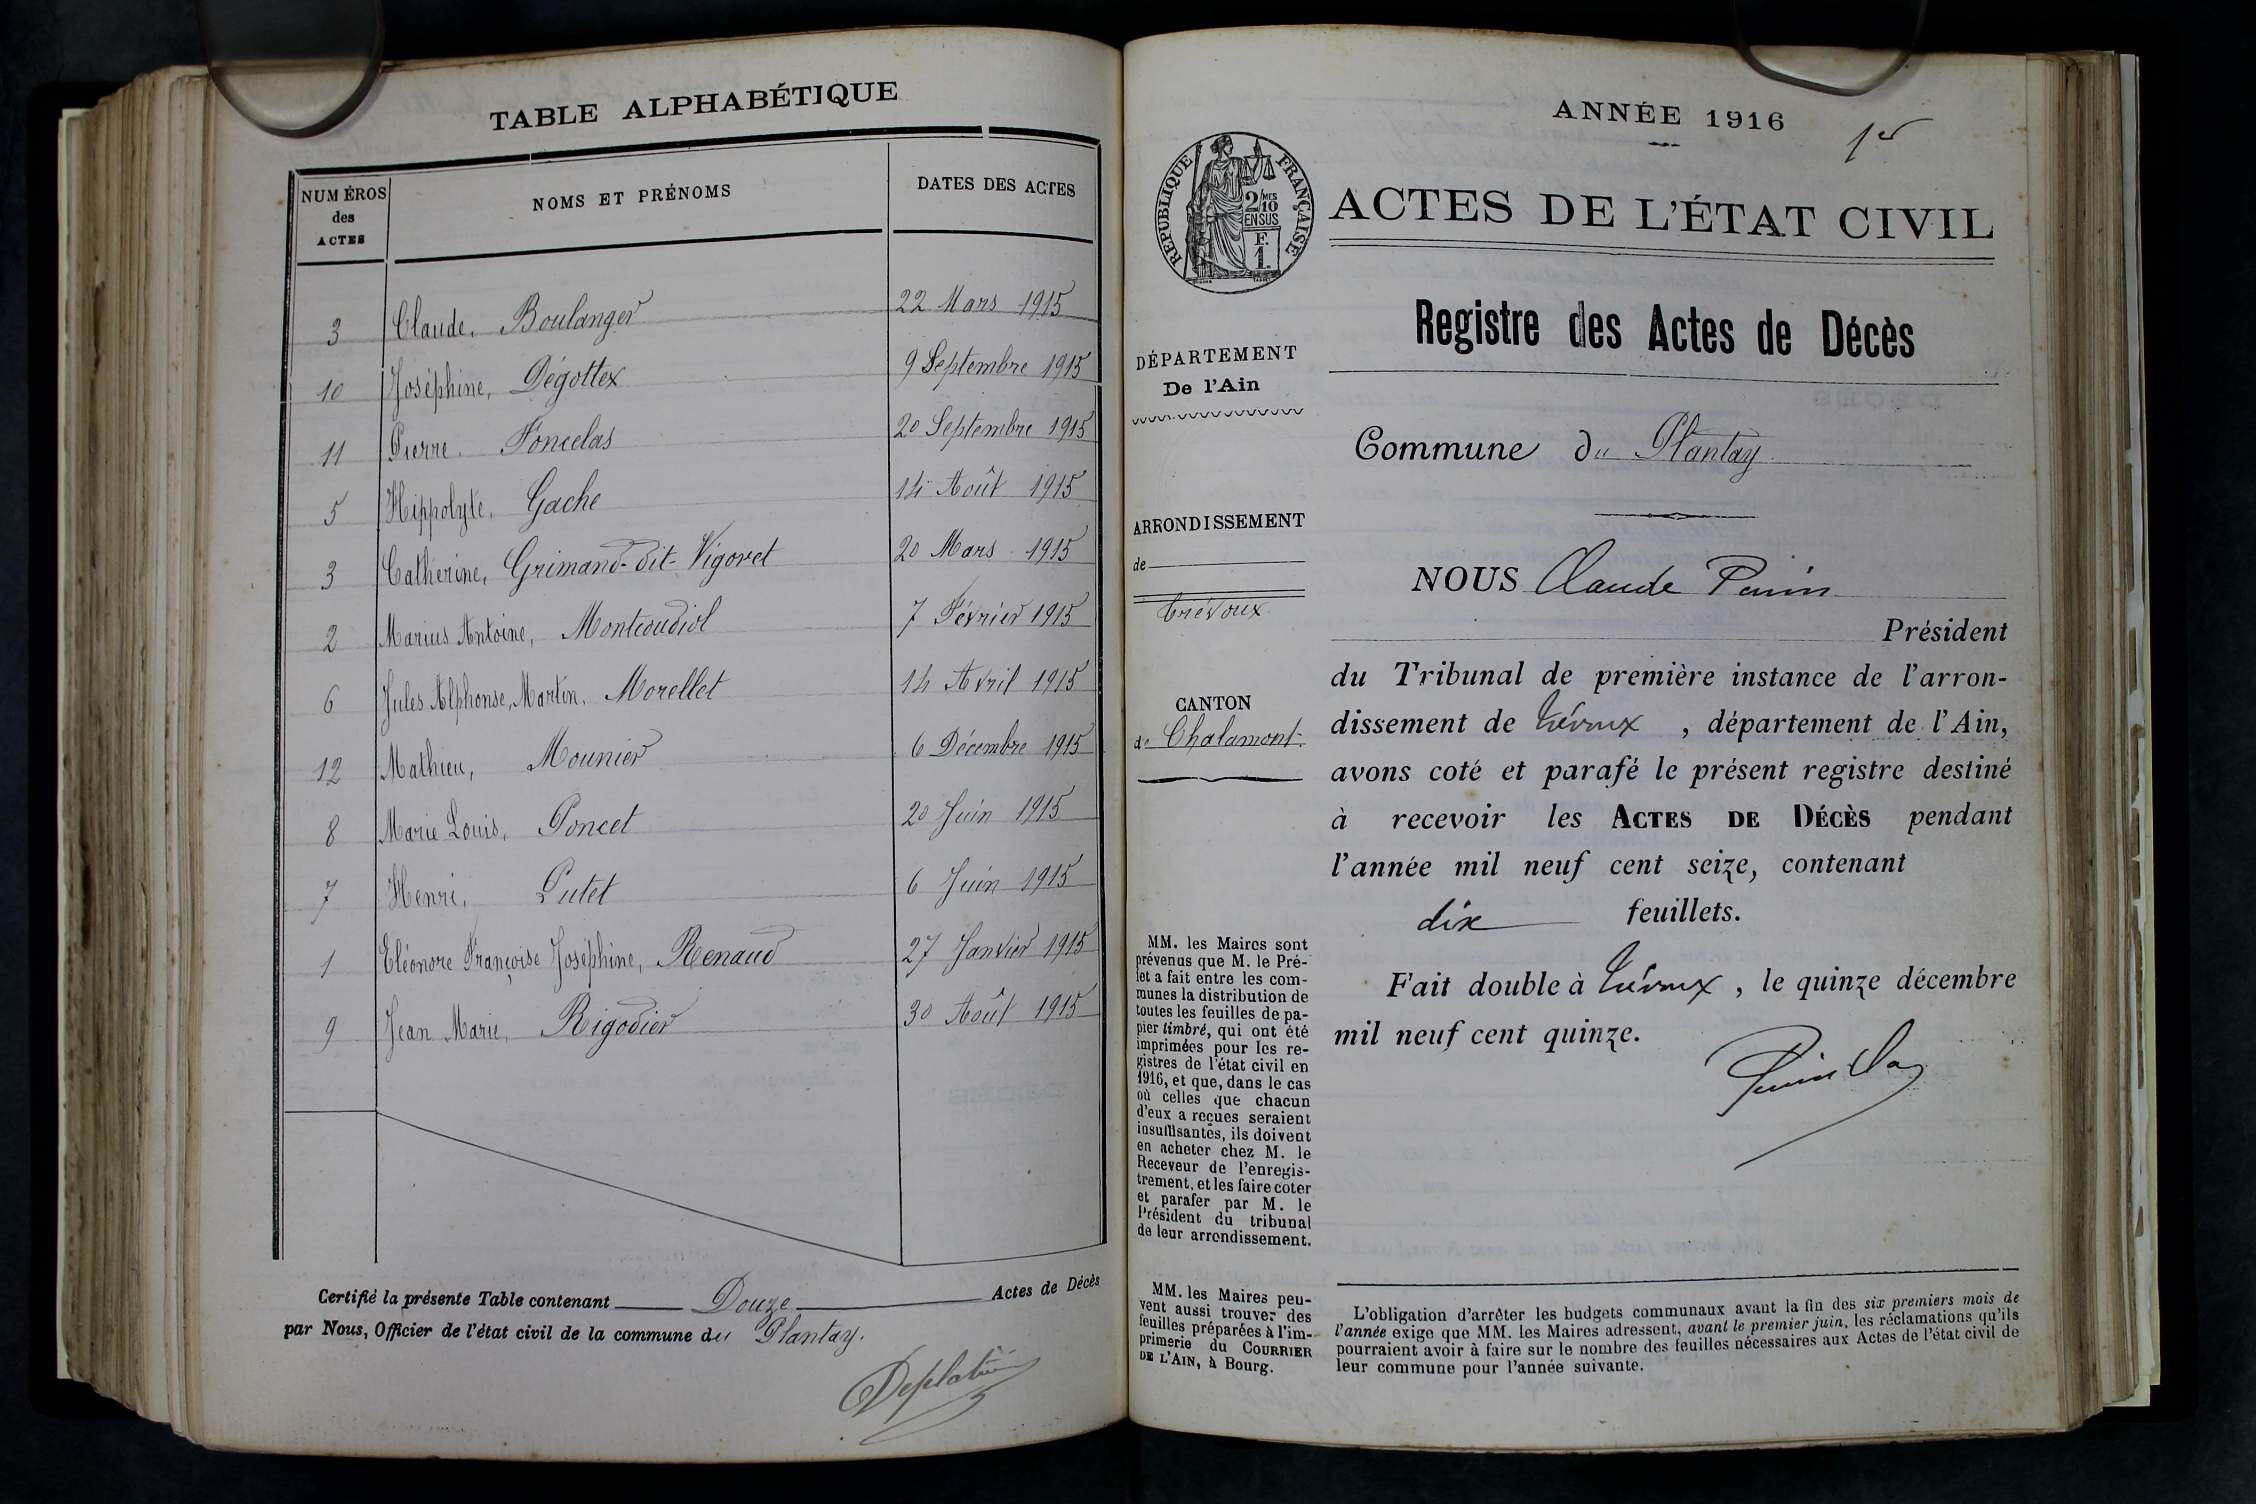 TABLE ALPHABÉTIQUE
NUMÉROS
des
ACTES
NOMS ET PRÉNOMS
DATES DES ACTES
3 Claude, Boulanger 22 Mars 1915
10 Joséphine, Dégottex 9 Septembre 1915
11 Pierre. Foncelas 20 Septembre 1915
5 Hippolyte, Gache 14 Août 1915
3 Catherine, Grimand-dit-Vigoret 20 Mars 1915
2 Marius Antoine, Montcoudiol 7 Février 1915
6 Jules Alphonse, Martin. Morellet 14 Avril 1915
12 Mathieu, Mounier 6 Décembre 1915
8 Marie Louis, Poncet 20 Juin 1915
7 Henri, Putet 6 Juin 1915
1 Eléonore Françoise Joséphine, Renaud 27 Janvier 1915
9 Jean Marie, Rigodier 30 Août 1915
Certifié la présente Table contenant Douze Actes de Décès
par Nous, Officier de l'état civil de la commune du Plantay.
ANNÉE 1916
1er
RÉPUBLIQUE FRANÇAISE
2/MES
10
EN SUS
F.
1.
ACTES DE L'ÉTAT CIVIL
Registre des Actes de Décès
DÉPARTEMENT
De l'Ain
Commune du Plantay
ARRONDISSEMENT
de
Trévoux
CANTON
de Chalamont
NOUS Claude Perrin
Président
du Tribunal de première instance de l'arron-
dissement de Trévoux , département de l'Ain,
avons coté et parafé le présent registre destiné
à recevoir les ACTES DE DÉCÈS pendant
l'année mil neuf cent seize, contenant
dix feuillets.
Fait double à Trévoux , le quinze décembre
mil neuf cent quinze.
MM. les Maires sont
prévenus que M. le Pré-
fet a fait entre les com-
munes la distribution de
toutes les feuilles de pa-
pier timbré, qui ont été
imprimées pour les re-
gistres de l'état civil en
1916, et que, dans le cas
où celles que chacun
d'eux a reçues seraient
insuffisantes, ils doivent
en acheter chez M. le
Receveur de l'enregis-
trement, et les faire coter
et parafer par M. le
Président du tribunal
de leur arrondissement.
MM. les Maires peu-
vent aussi trouver des
feuilles préparées à l'im-
primerie du COURRIER
DE L'AIN, à Bourg.
L'obligation d'arrêter les budgets communaux avant la fin des six premiers mois de
l'année exige que MM. les Maires adressent, avant le premier juin, les réclamations qu'ils
pourraient avoir à faire sur le nombre des feuilles nécessaires aux Actes de l'état civil de
leur commune pour l'année suivante.